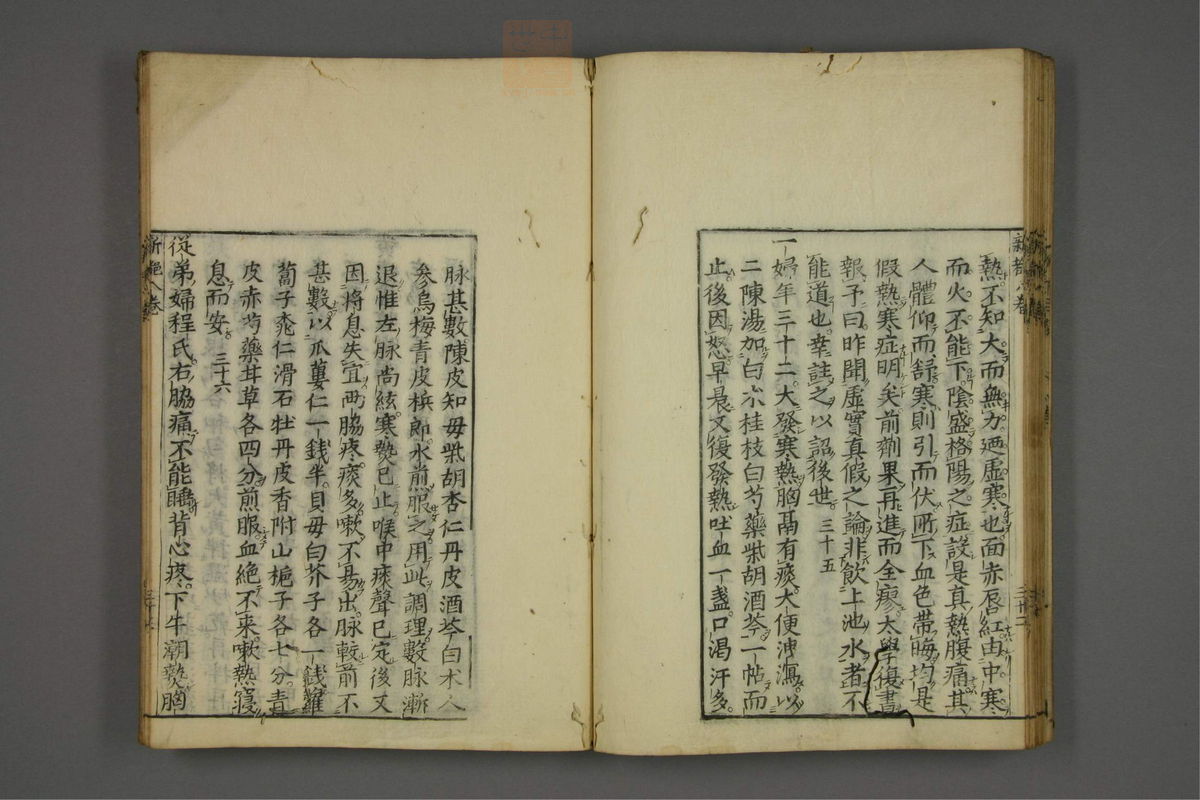 熱不知大而無力迺虛寒也面赤唇紅由中寒
而火不能下陰盛格陽之症設是真熱腹痛其
人體仰而舒寒則引而伏所下血色帶晦均是
假熱寒症明矣前劑果再進而全瘳大學復書
報予曰昨聞虛實真假之論非飲上池水者不
能道也幸註之以詔後世 三十五
一婦年三十二大發寒熱胸鬲有痰大便洩瀉以
二陳湯加白朮桂枝白芍藥柴胡酒芩一帖而
止後因怒早晨又復發熱吐血一盞口渴汗多
脉甚數陳皮知母柴胡杏仁丹皮酒芩白朮人
參烏梅青皮檳郎水煎服之用此調理數脉漸
退惟左脉尚絃寒熱已止喉中痰聲已定後又
因將息失宜両脇疼痰多嗽不易出脉較前不
甚數以瓜蔞仁一錢半貝母白芥子各一錢蘿
蔔子桃仁滑石牡丹皮香附山梔子各七分青
皮赤芍藥甘草各四分煎服血絶不来嗽熱寢
息而安 三十六
從弟婦程氏右脇痛不能睡背心疼下午潮熱胸